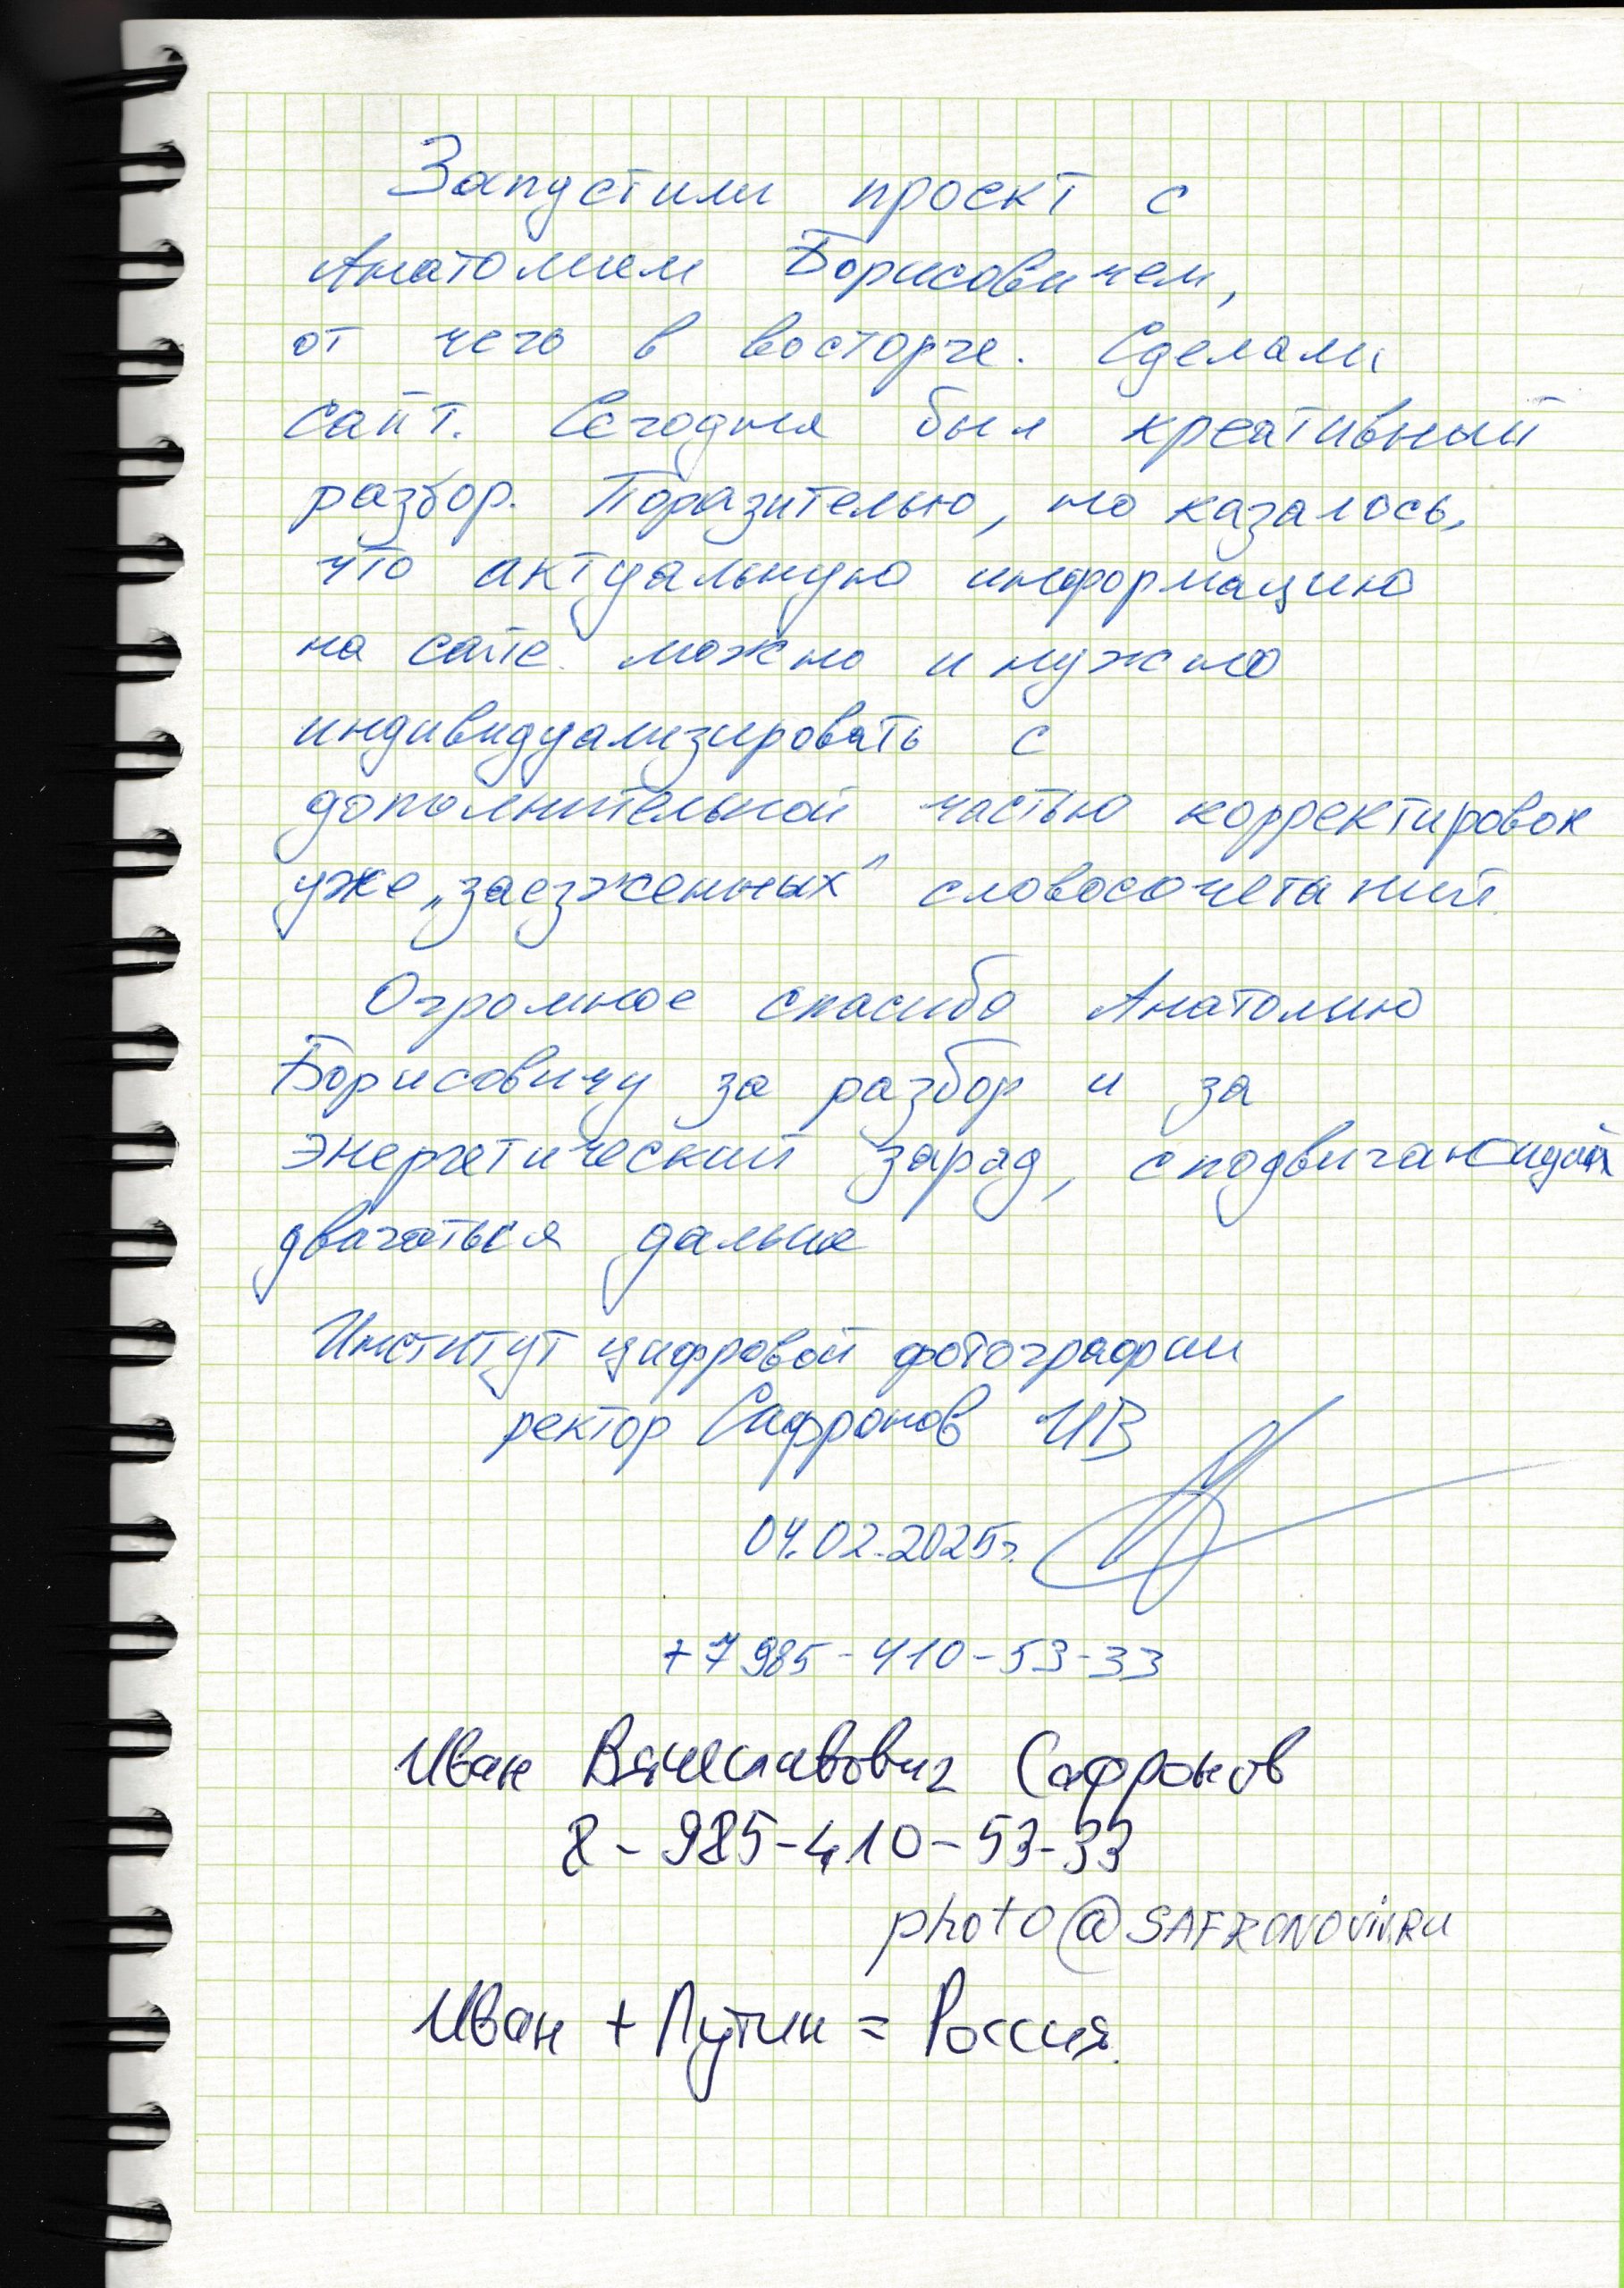 Запустили проект с
Анатолием Борисовичем,
от чего в восторге. Сделали
сайт. Сегодня был креативный
разбор. Поразительно, но казалось,
что актуальную информацию
на сайте можно и нужно
индивидуализировать с
дополнительной частью корректировок
уже „заезженных" словосочетаний
Огромное спасибо Анатолию
Борисовичу за разбор и за
энергетический заряд, сподвигающий
двигаться дальше
Институт цифровой фотографии
ректор Сафронов ИВ
04.02.2025г.
+7 985-410-53-33
Иван Вячеславович Сафронов
8-985-410-53-33
photo@SAFRONOViv.RU
Иван + Путин = Россия.